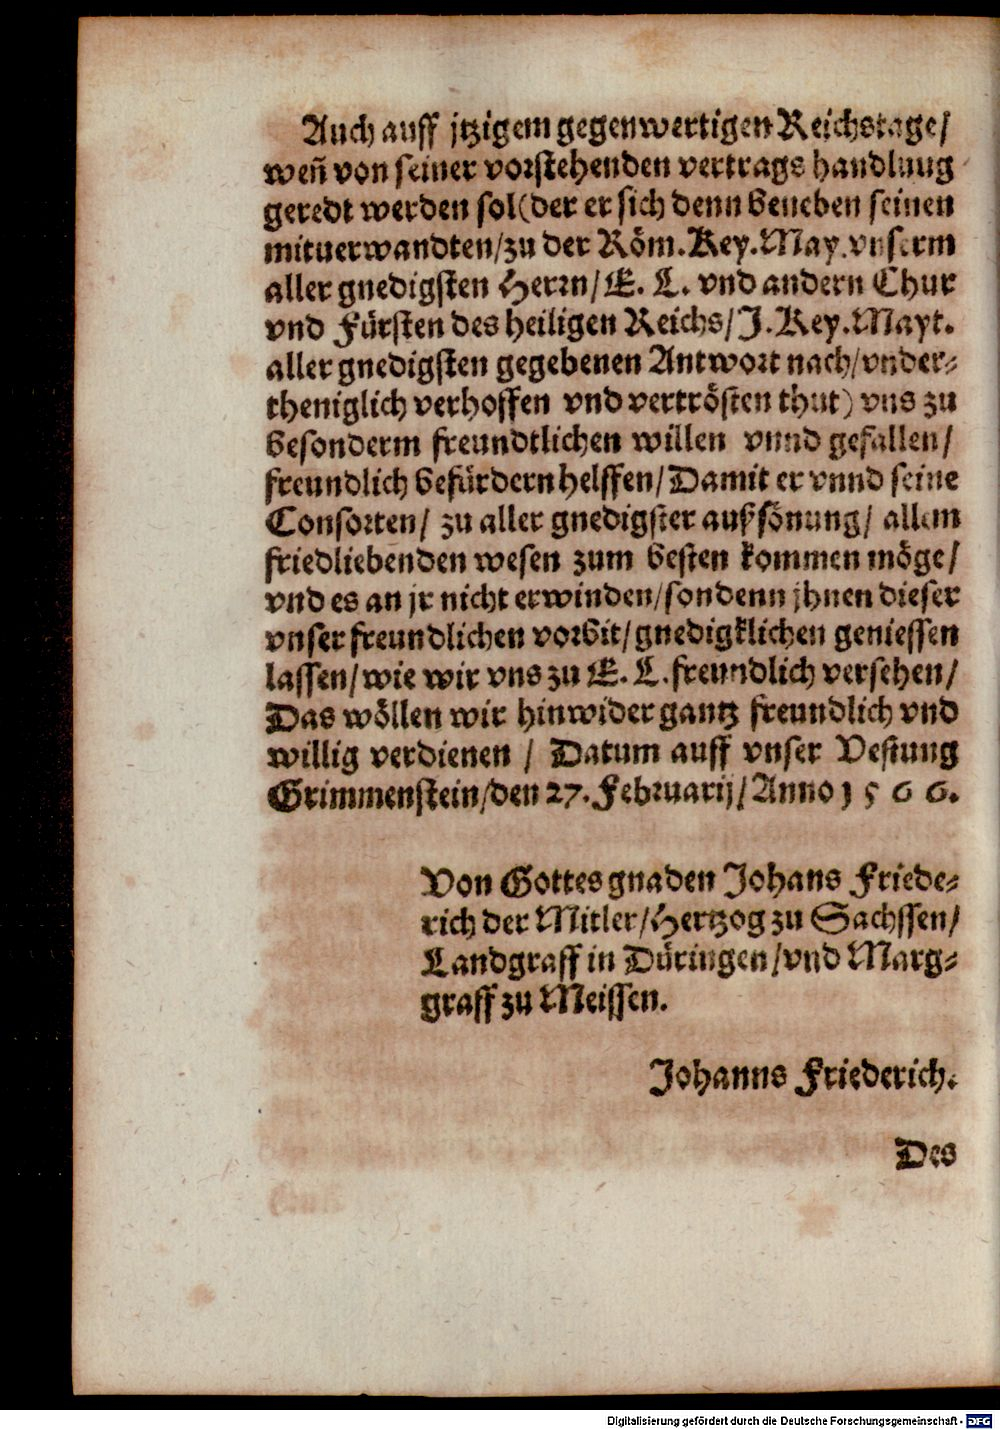 Auch auff jtzigem gegenwertigen Reichstage/
weñ von seiner vorstehenden vertrags handlung
geredt werden sol(der er sich denn beneben seinen
mituerwandten/zu der Röm.Key.May.vnserm
aller gnedigsten Herrn/E. L. vnd andern Chur
vnd Fürsten des heiligen Reichs/J.Key.Mayt.
aller gnedigsten gegebenen Antwort nach/vnder-
theniglich verhoffen vnd vertrösten thut) vns zu
besonderm freundtlichen willen vnnd gefallen/
freundlich befürdern helffen/Damit er vnnd seine
Consorten/ zu aller gnedigster außsönung/ allem
friedliebenden wesen zum besten kommen möge/
vnd es an jr nicht erwinden/sondenn jhnen dieser
vnser freundlichen vorbit/gnedigklichen geniessen
lassen/wie wir vns zu E. L.freundlich versehen/
Das wöllen wir hinwider gantz freundlich vnd
willig verdienen / Datum auff vnser Vestung
Grimmenstein/den 27.Februarij/Anno 1 5 6 6.
Von Gottes gnaden Johans Friede-
rich der Mitler/Hertzog zu Sachssen/
Landgraff in Düringen/vnd Marg-
graff zu Meissen.
Johanns Friederich.
Des
Digitalisierung gefördert durch die Deutsche Forschungsgemeinschaft - DFG